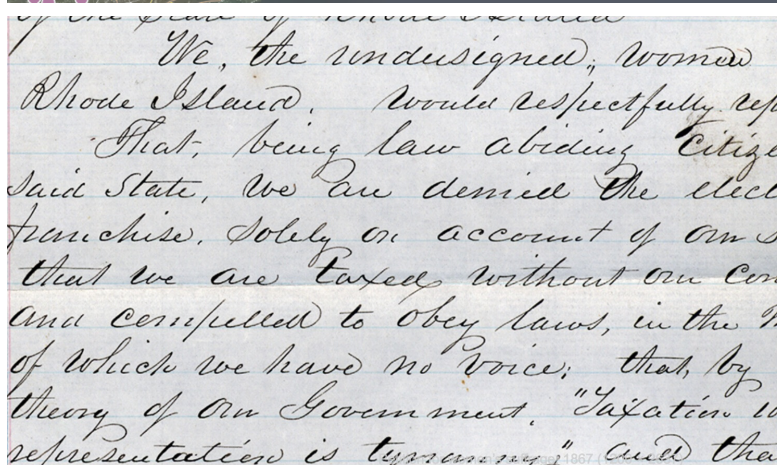 of the State of Rhode Island
We, the undersigned, women
Rhode Island, would respectfully rep
That, being law abiding citize
said State, we are denied the elect
franchise, solely on account of our s
that we are taxed without our con
and compelled to obey laws, in the m
of which we have no voice; that, by
theory of our Government, "Taxation w
representation is tyranny," and tha
1867